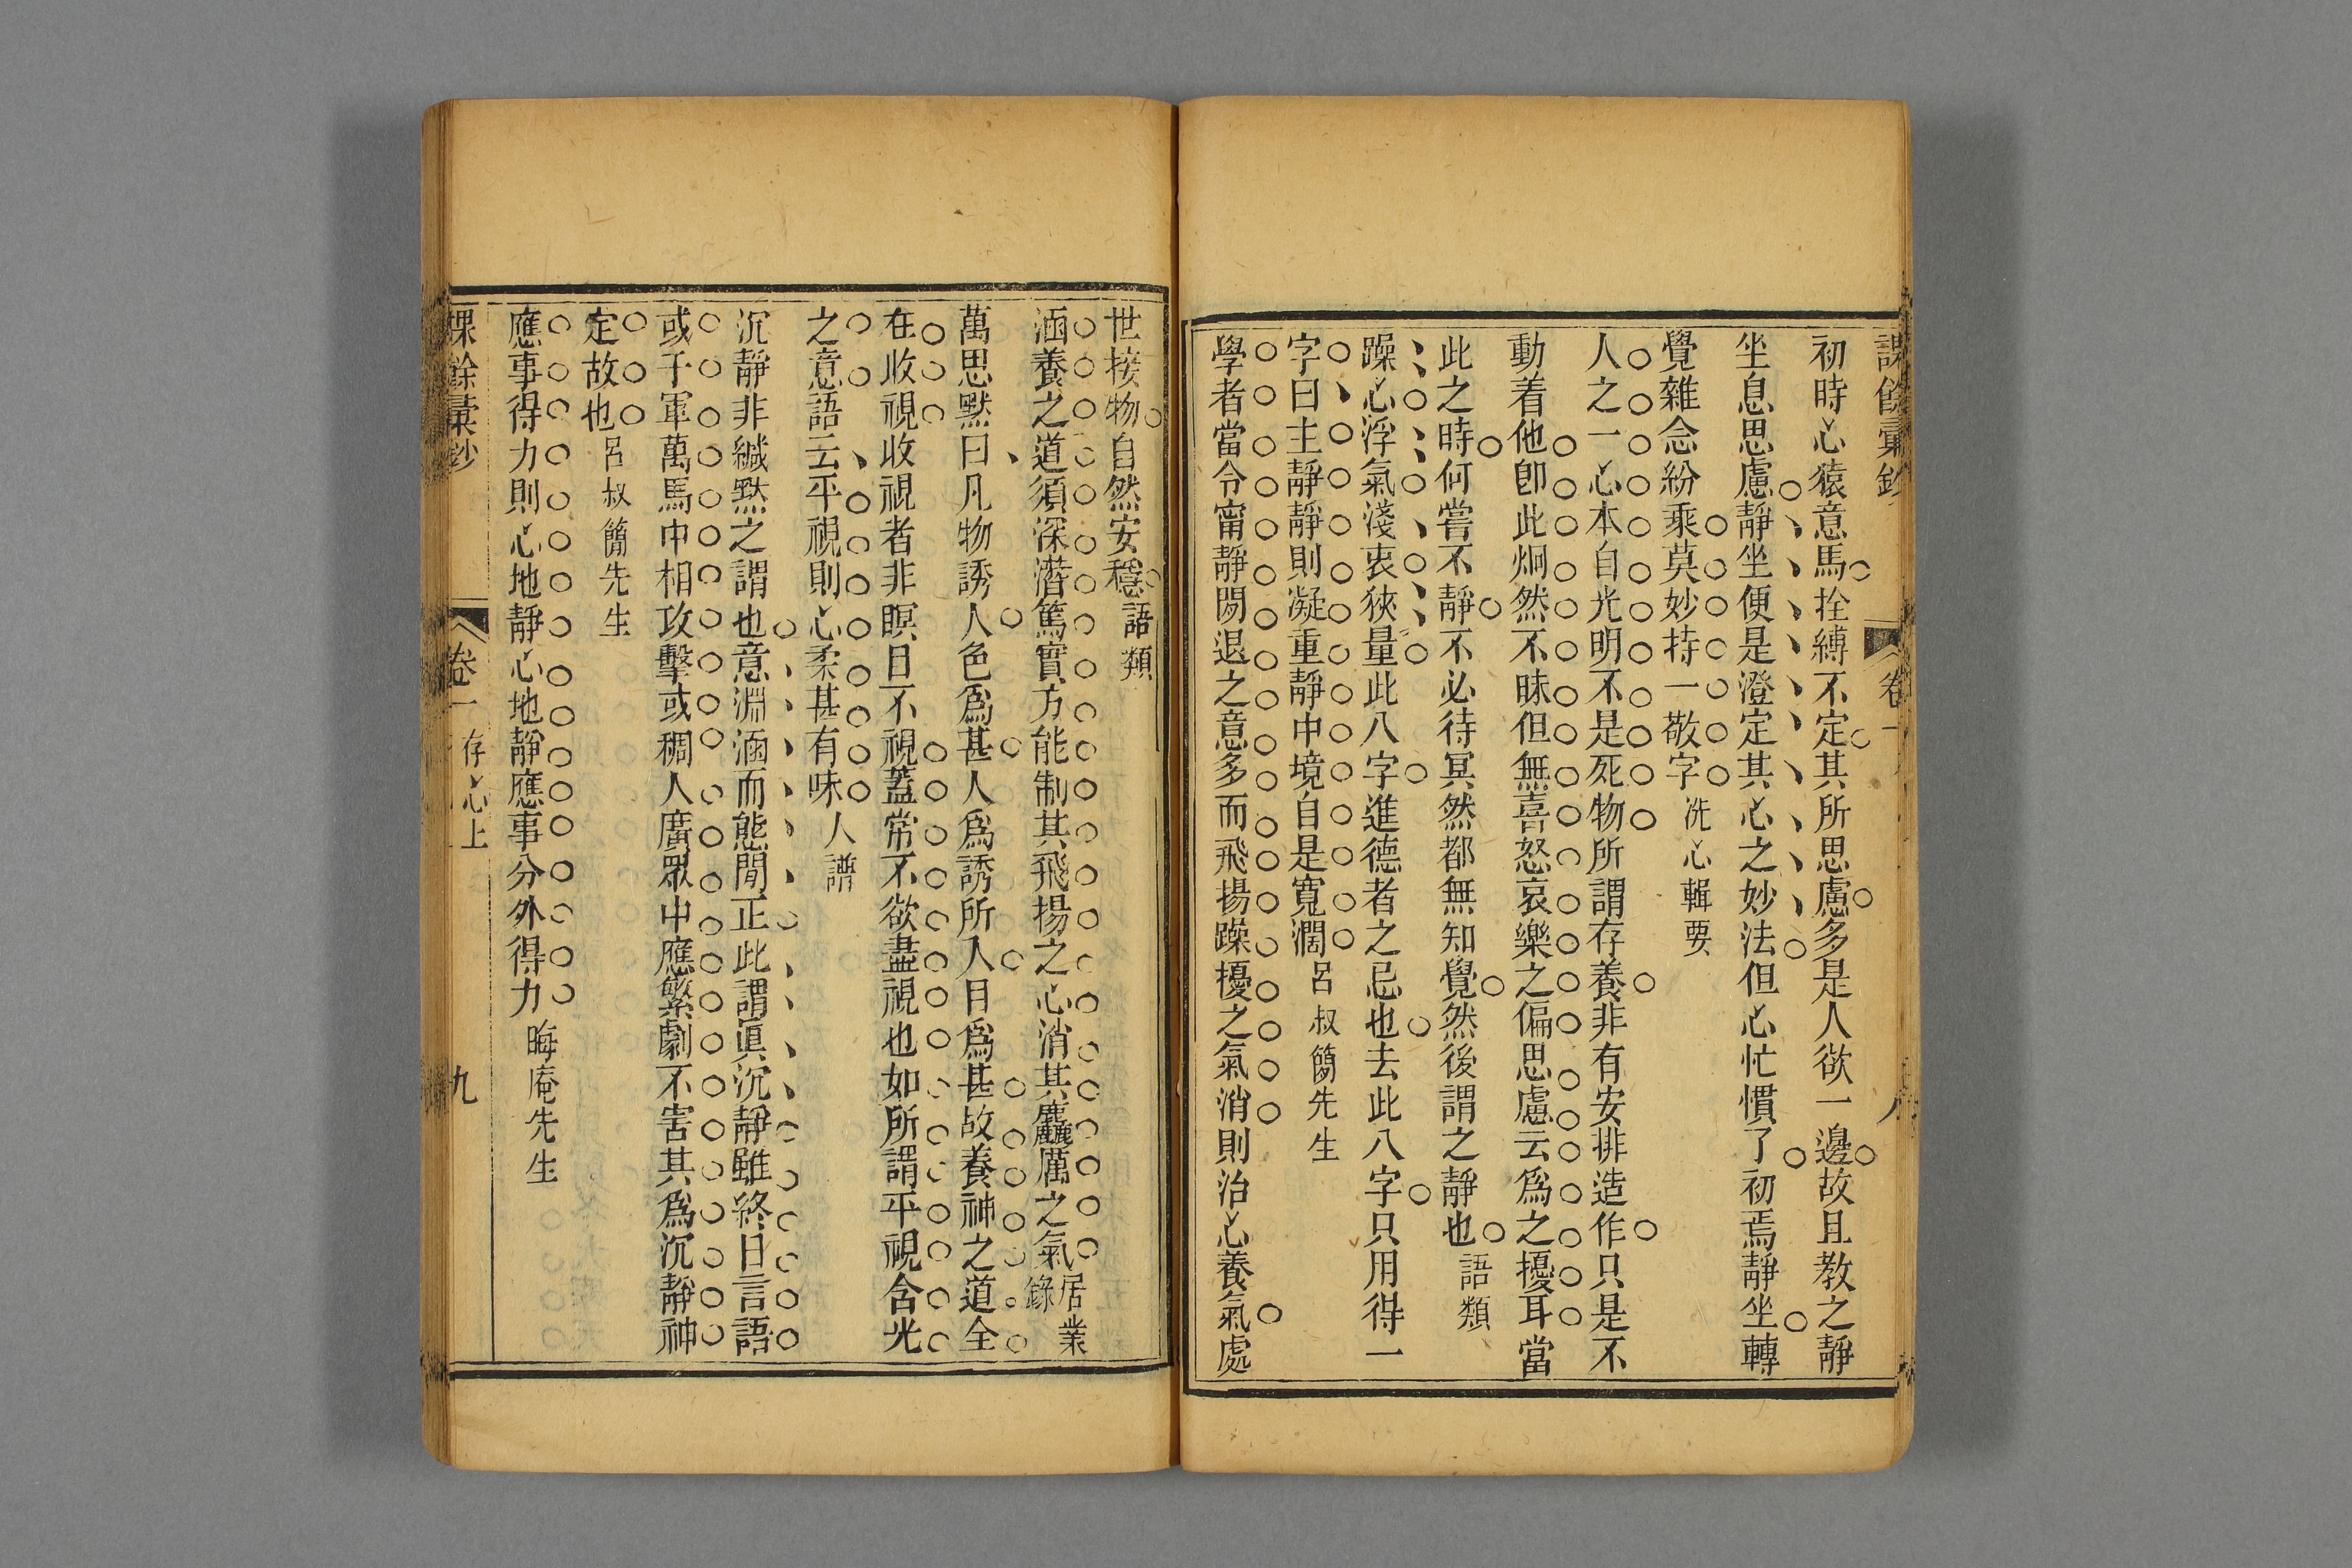 課餘彙鈔 卷一 八
初時心猿意馬拴縛不定其所思慮多是人欲一邊故且教之靜
坐息思慮靜坐便是澄定其心之妙法但心忙慣了初焉靜坐轉
覺雜念紛乘莫妙持一敬字 洗心輯要
人之一心本自光明不是死物所謂存養非有安排造作只是不
動着他卽此炯然不昧但無喜怒哀樂之偏思慮云爲之擾耳當
此之時何嘗不靜不必待冥然都無知覺然後謂之靜也 語類
躁心浮氣淺衷狹量此八字進德者之忌也去此八字只用得一
字曰主靜靜則凝重靜中境自是寬濶 呂叔簡先生
學者當令甯靜閒退之意多而飛揚躁擾之氣消則治心養氣處
世接物自然安穩 語類
涵養之道須深潛篤實方能制其飛揚之心消其麤厲之氣 居業錄
萬思默曰凡物誘人色爲甚人爲誘所入目爲甚故養神之道全
在收視收視者非瞑目不視蓋常不欲盡視也如所謂平視含光
之意語云平視則心柔甚有味 人譜
沉靜非緘默之謂也意淵涵而態閒正此謂眞沉靜雖終日言語
或于軍萬馬中相攻擊或稠人廣眾中應繁劇不害其爲沉靜神
定故也 呂叔簡先生
應事得力則心地靜心地靜應事分外得力 晦庵先生
課餘彙鈔 卷一 存心上 九